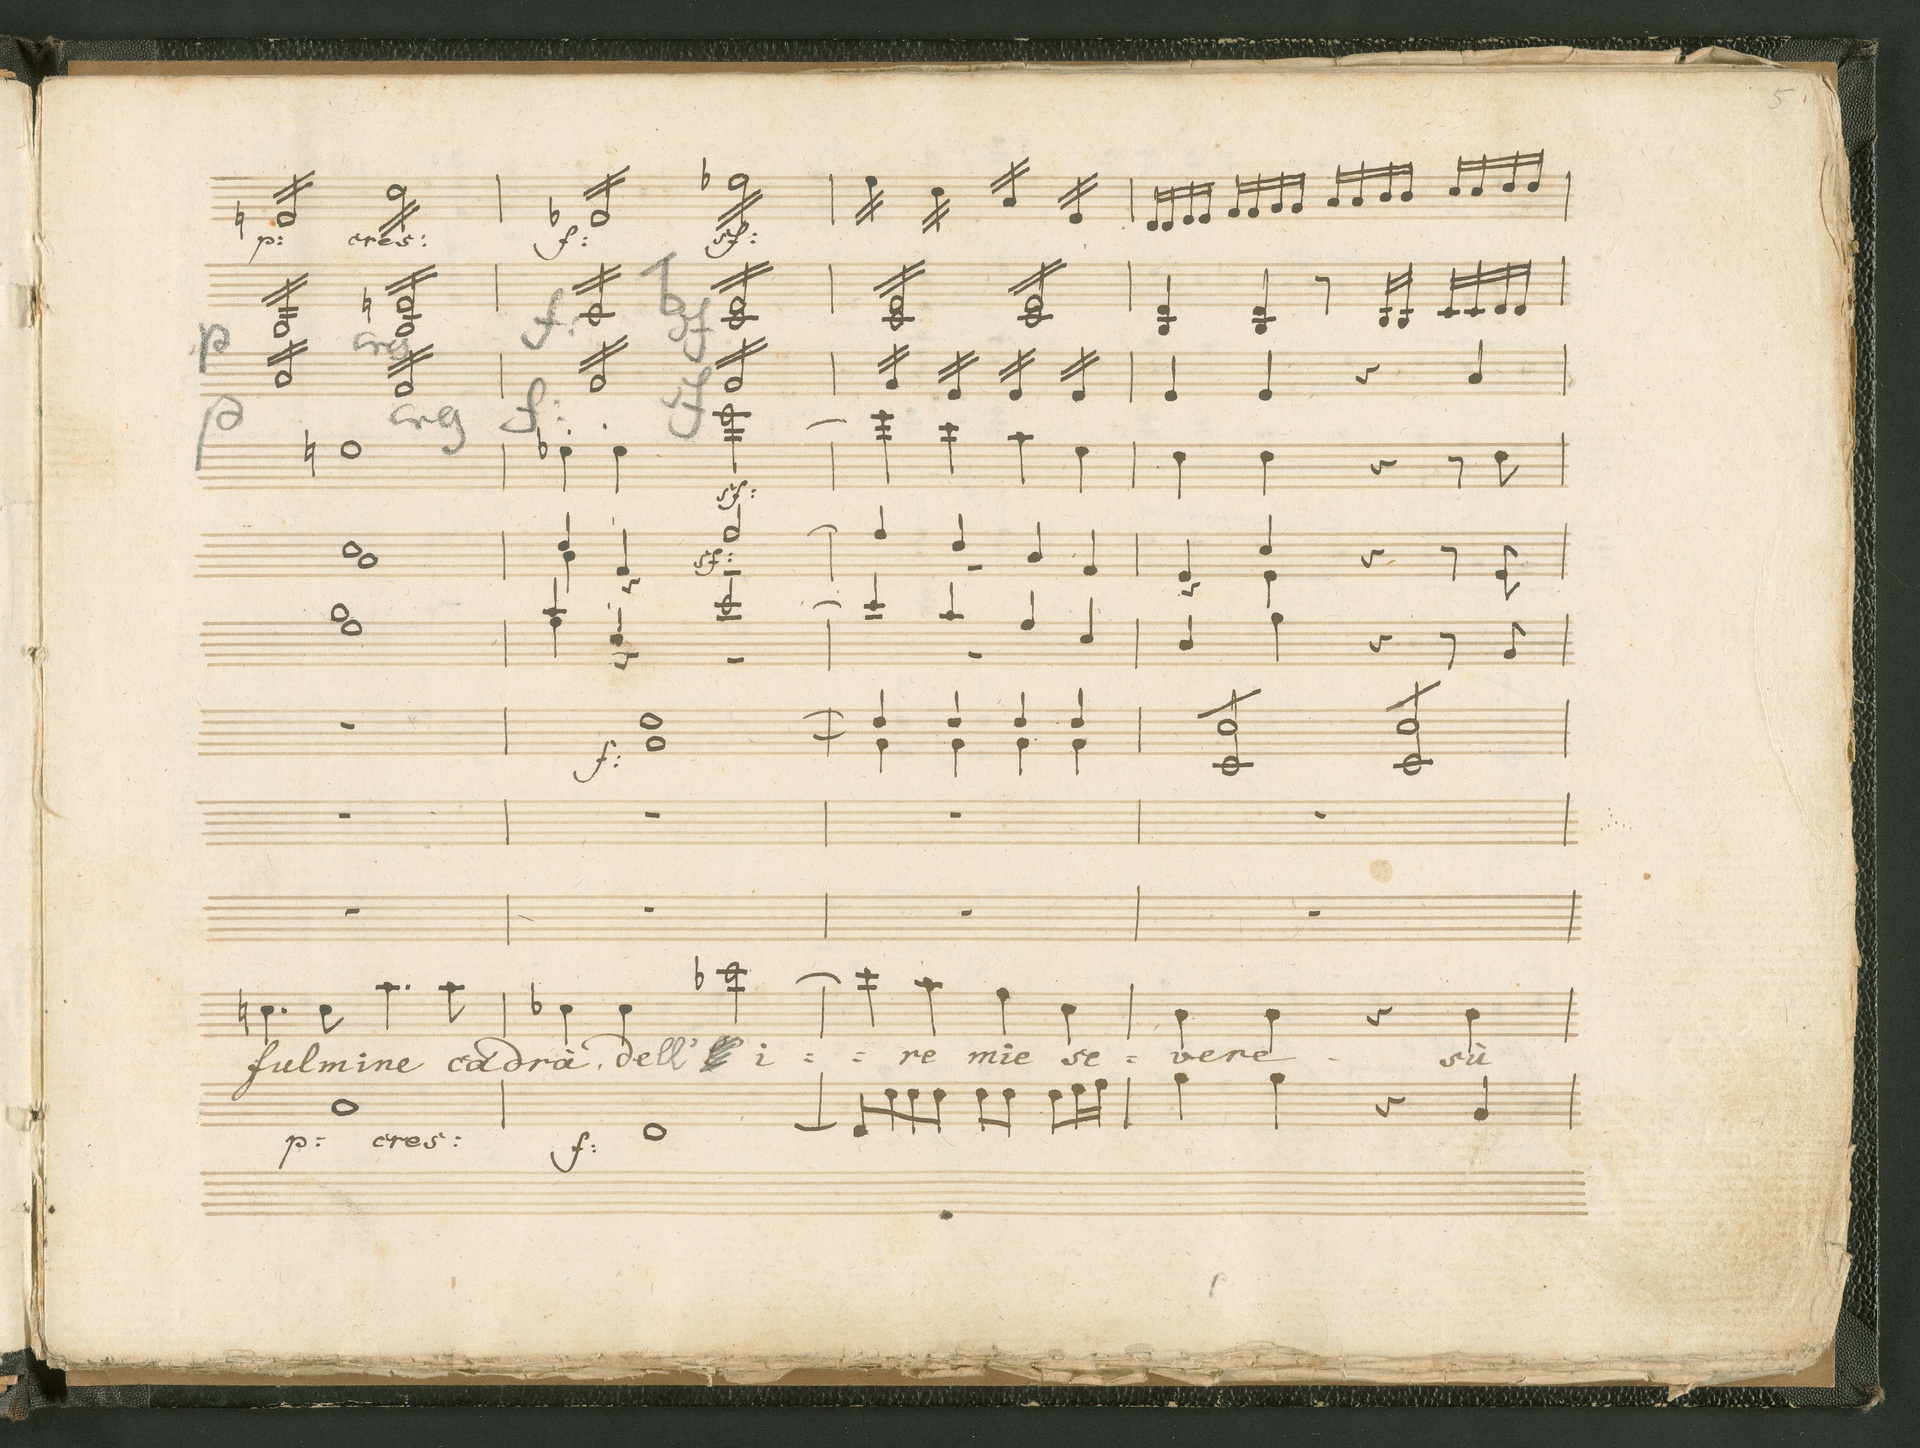 5
p: cres: f: sf:
p cres f: sf
p cres f: sf
sf:
sf:
f:
fulmine cadrà, dell' i = = re mie se = vere - sù
p: cres: f: